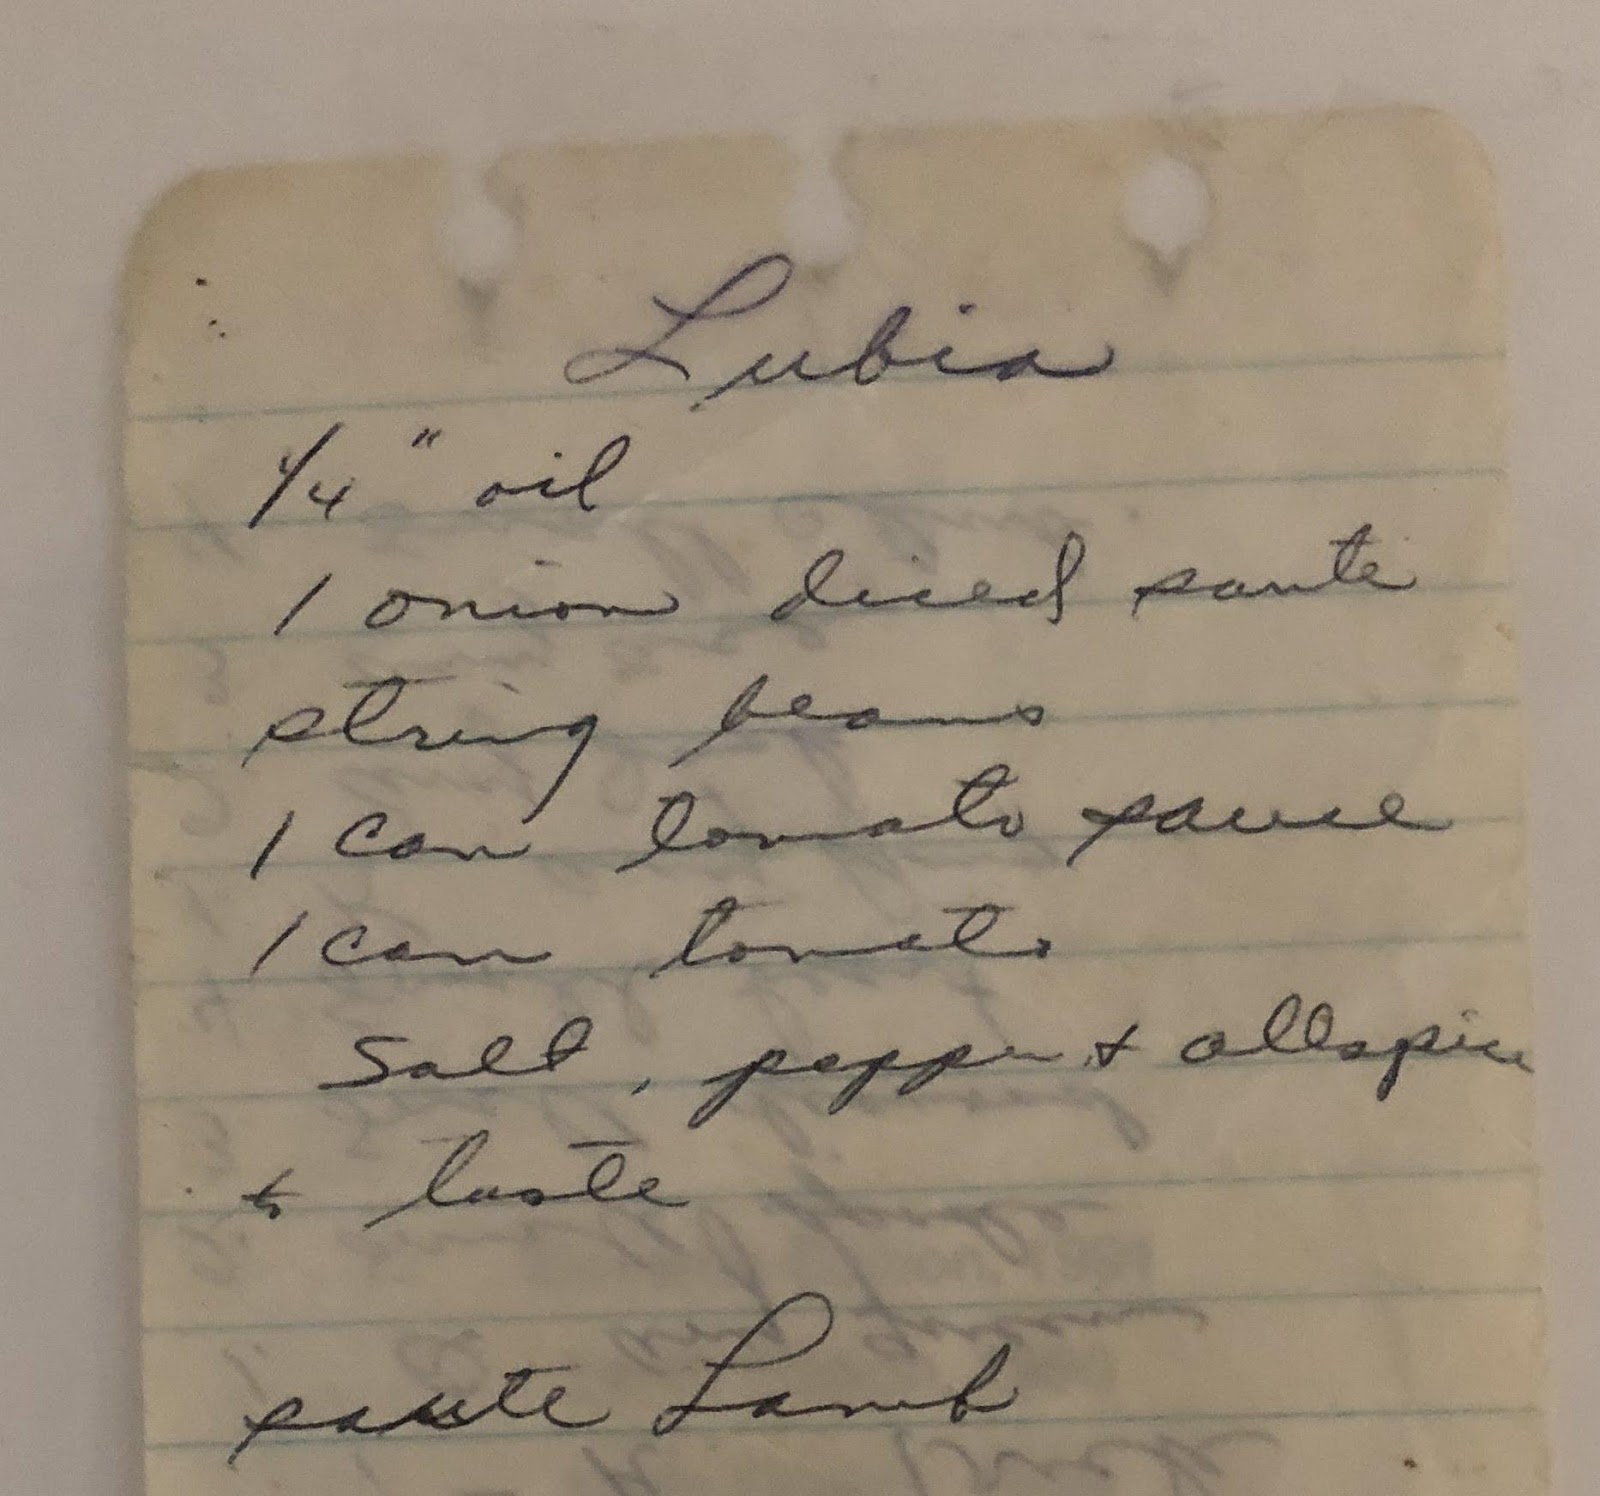 Lubia
1/4" oil
1 onion diced saute
string beans
1 can tomato sauce
1 can tomato
Salt, pepper + allspice
to taste
saute Lamb